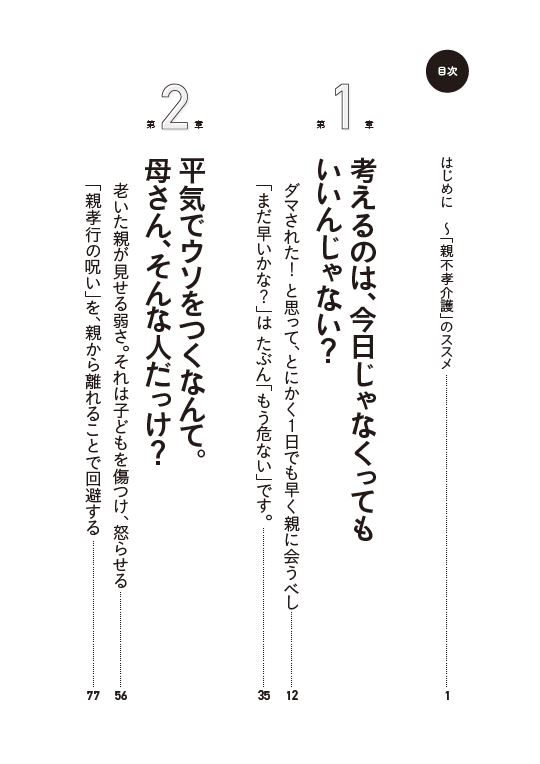 目次
はじめに　～「親不孝介護」のススメ 1
第1章
考えるのは、今日じゃなくっても
いいんじゃない？
ダマされた！と思って、とにかく1日でも早く親に会うべし 12
「まだ早いかな？」は たぶん「もう危ない」です。 35
第2章
平気でウソをつくなんて。
母さん、そんな人だっけ？
老いた親が見せる弱さ。それは子どもを傷つけ、怒らせる 56
「親孝行の呪い」を、親から離れることで回避する 77